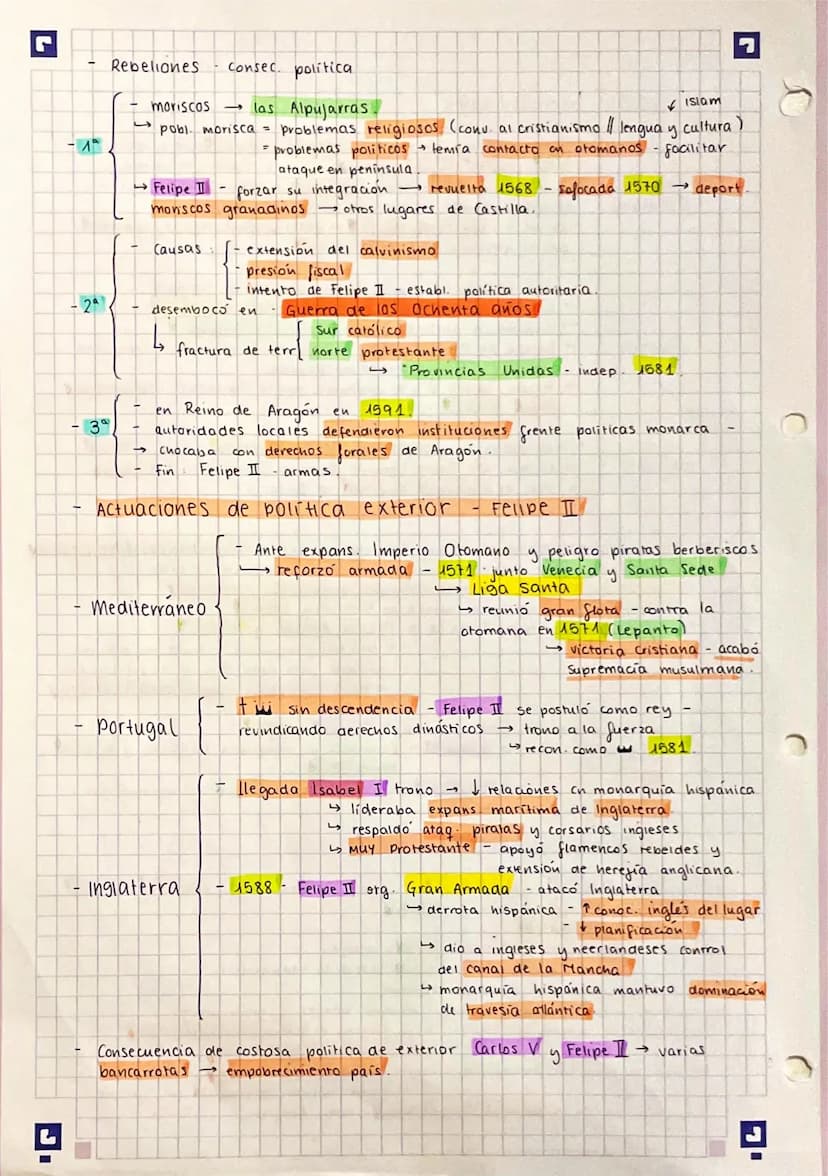 - Rebeliones - consec. política
- moriscos → las Alpujarras.
↙ islam
↳ pobl. morisca = problemas religiosos (conv. al cristianismo // lengua y cultura)
= problemas políticos → temía contacto cn otomanos - facilitar
ataque en península.
- 1ª
↳ Felipe II - forzar su integración → revuelta 1568 - sofocada 1570 → deport.
moriscos granadinos → otros lugares de Castilla.
- Causas: - extensión del calvinismo
- presión fiscal
- intento de Felipe II - establ. política autoritaria.
- 2ª
- desembocó en - Guerra de los Ochenta años
↳ fractura de terr. sur católico
norte protestante
↳ Provincias Unidas - indep. 1581.
- en Reino de Aragón en 1591.
- 3ª
- autoridades locales defendieron instituciones frente políticas monarca -
→ chocaba con derechos forales de Aragón.
- Fin Felipe II - armas.
- Actuaciones de política exterior - Felipe II
- Ante expans. Imperio Otomano y peligro piratas berberiscos
↳ reforzó armada - 1571 junto Venecia y Santa Sede
↳ Liga Santa
- Mediterráneo
↳ reunió gran flota - contra la
otomana en 1571 (Lepanto)
↳ victoria cristiana - acabó
supremacía musulmana.
- Portugal
- † sin descendencia - Felipe II se postuló como rey -
revindicando derechos dinásticos → trono a la fuerza
↳ recon. como 1581.
- llegada Isabel I trono → ↓ relaciones cn monarquía hispánica
↳ lideraba expans. marítima de Inglaterra.
↳ respaldó ataq. piratas y corsarios ingleses
↳ MUY Protestante - apoyó flamencos rebeldes y
extensión de herejía anglicana.
- Inglaterra
- 1588 - Felipe II org. Gran Armada - atacó Inglaterra
↳ derrota hispánica - ↑ conoc. inglés del lugar
- ↓ planificación
↳ dio a ingleses y neerlandeses control
del canal de la Mancha
↳ monarquía hispánica mantuvo dominación
de travesía atlántica.
- Consecuencia de costosa política de exterior Carlos V y Felipe II → varias
bancarrotas → empobrecimiento país.